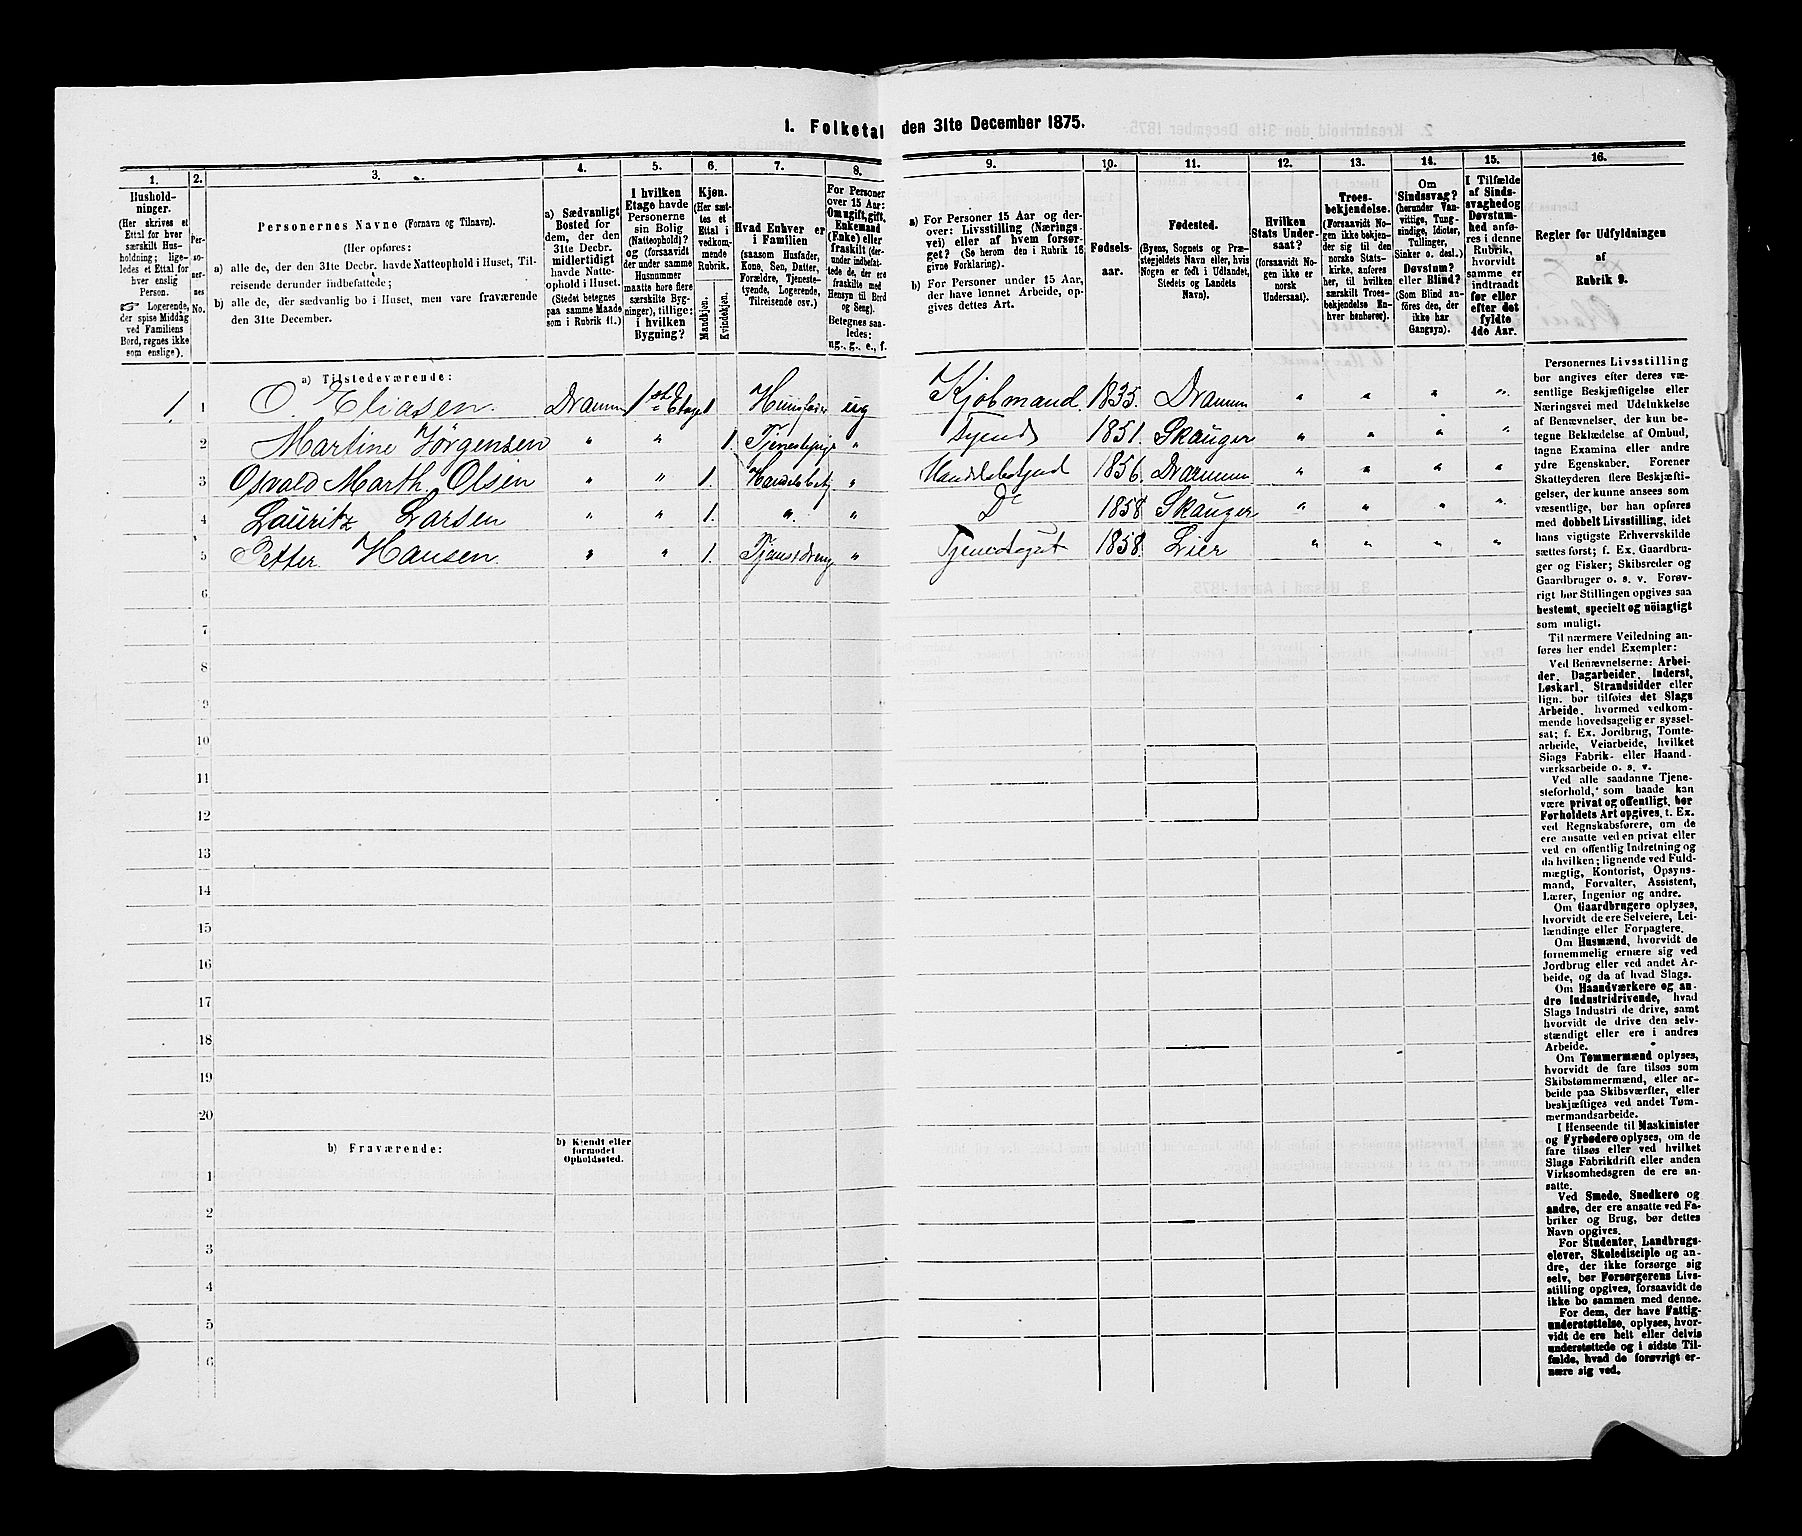 1. Folketal den 31te December 1875.
1. 2. 3. 4. 5. 6. 7. 8. 9. 10. 11. 12. 13. 14. 15. 16.
Hushold-
ninger.
(Her skrives et
Ettal for hver
særskilt Hus-
holdning; lige-
ledes et Ettal for
hver enslig
Person.
☞ Logerende,
der spise Middag
ved Familiens
Bord, regnes ikke
som enslige).
Per-
so-
ner-
nes
No.
Personernes Navne (Fornavn og Tilnavn).
(Her opføres:
a) alle de, der den 31te Decbr. havde Natteophold i Huset, Til-
reisende derunder indbefattede;
b) alle de, der sædvanlig bo i Huset, men vare fraværende
den 31te December.
a) Sædvanligt
Bosted for
dem, der den
31te Decbr.
midlertidigt
havde Natte-
ophold i Huset.
(Stedet betegnes
paa samme Maade
som i Rubrik 11.)
I hvilken
Etage havde
Personerne
sin Bolig
(Natteophold)?
og (forsaavidt
der under samme
Husnummer
maatte høre flere
særskilte Byg-
ninger), tillige:
i hvilken
Bygning?
Kjøn.
(Her sæt-
tes et
Ettal i
vedkom-
mende
Rubrik.
Mandkjøn.
Kvindekjøn.
Hvad Enhver er
i Familien
(saasom Husfader,
Kone, Søn, Datter,
Forældre, Tjeneste-
tyende, Logerende,
Tilreisende osv.)
For Personer
over 15 Aar:
Om ugift, gift,
Enkemand
(Enke) eller
fraskilt (der-
under indbefat-
tede de, der ere
fraskilte med
Hensyn til Bord
og Seng).
Betegnes saa-
ledes:
ug., g., e., f.
a) For Personer 15 Aar og der-
over: Livsstilling (Nærings-
vei) eller af hvem forsør-
get? (Se herom den i Rubrik 16
givne Forklaring).
b) For Personer under 15 Aar,
der have lønnet Arbeide, op-
gives dettes Art.
Fødsels-
aar.
Fødested.
(Byens, Sognets og Præ-
stegjeldets Navn eller, hvis
Nogen er født i Udlandet,
Stedets og Landets
Navn).
Hvilken
Stats Under-
saat?
(forsaavidt No-
gen ikke er
norsk
Undersaat).
Troes-
bekjendelse.
(Forsaavidt No-
gen ikke bekjen-
der sig til den
norske Stats-
kirke, anføres
her, til hvilken
særskilt Troes-
bekjendelse En-
hver henhører).
Om
Sindssvag?
(herunder Van-
vittige, Tung-
sindige, Idioter,
Tullinger,
Sinker o. desl.)
Døvstum?
eller Blind?
(Som Blind an-
føres den, der
ikke har
Gangsyn).
I Tilfælde
af Sinds-
svaghed og
Døvstum-
hed anfø-
res i denne
Rubrik,
hvorvidt
samme er
indtraadt
før eller
efter det
fyldte
4de Aar.
Regler for Udfyldningen
af
Rubrik 9.
a) Tilstedeværende:
1 1 O. Eliasen. Drammen 1ste Etage 1 Husfader ug Kjøbmand 1835. Drammen " " " "
2 Martine Jørgensen " " 1. Tjenestepige " Tyende 1851. Skauger " " " "
3 Osvald Marth. Olsen " " 1. Handelsbetj " Handelsbetjent 1856. Drammen " " " "
4 Lauritz Larsen " " 1. " " Do 1858 Skauger " " " "
5 Petter Hansen. " " 1. Tjenestdreng " 1858. Lier " " " "
6
7
8
9
10
11
12
13
14
15
16
17
18
19
20
b) Fraværende:
b) Kjendt eller
formodet
Opholdssted.
1
2
3
4
5
6
Personernes Livsstilling
bør angives efter deres væ-
sentlige Beskjæftigelse eller
Næringsvei med Udelukkelse
af Benævnelser, der kun be-
tegne Beklædelse af Ombud,
tagne Examina eller andre
ydre Egenskaber. Forener
Skatteyderen flere Beskjæfti-
gelser, der kunne ansees som
væsentlige, bør han opføres
med dobbelt Livsstilling, idet
hans vigtigste Erhvervskilde
sættes først; f. Ex. Gaardbru-
ger og Fisker; Skibsreder og
Gaardbruger o. s. v. Forøv-
rigt bør Stillingen opgives saa
bestemt, specielt og nöiagtigt
som muligt.
Til nærmere Veiledning an-
føres her endel Exempler:
Ved Benævnelserne: Arbei-
der, Dagarbeider, Inderst,
Løskarl, Strandsidder eller
lign. bør tilføies det Slags
Arbeide, hvormed vedkom-
mende hovedsagelig er syssel-
sat; f. Ex. Jordbrug, Tomte-
arbeide, Veiarbeide, hvilket
Slags Fabrik- eller Haand-
værksarbeide o. s. v.
Ved alle saadanne Tjene-
steforhold, som baade kan
være privat og offentligt, bør
Forholdets Art opgives, t. Ex.
ved Regnskabsførere, om de
ere ansatte ved en privat eller
ved en offentlig Indretning og
da hvilken; lignende ved Fuld-
mægtig, Kontorist, Opsyns-
mand, Forvalter, Assistent,
Lærer, Ingeniør og andre.
Om Gaardbrugere oplyses,
hvorvidt de ere Selveiere, Lei-
lændinge eller Forpagtere.
Om Husmænd, hvorvidt de
fornemmelig ernære sig ved
Jordbrug eller ved andet Ar-
beide, og da af hvad Slags.
Om Haandværkere og an-
dre Industridrivende, hvad
Slags Industri de drive, samt
hvorvidt de drive den selv-
stændigt eller ere i andres
Arbeide.
Om Tømmermænd oplyses,
hvorvidt de fare tilsøs som
Skibstømmermænd, eller ar-
beide paa Skibsværfter, eller
beskjæftiges ved andet Tøm-
mermandsarbeide.
I Henseende til Maskinister
og Fyrbødere oplyses, om de
fare tilsøs eller ved hvilket
Slags Fabrikdrift eller anden
Virksomhedsgren de ere an-
satte.
Ved Smede, Snedkere og
andre, der ere ansatte ved Fa-
briker og Brug, bør dettes
Navn opgives.
For Studenter, Landbrugs-
elever, Skoledisciple og an-
dre, der ikke forsørge sig
selv, bør Forsørgerens Livs-
stilling opgives, forsaavidt de
ikke bo sammen med denne.
For dem, der have Fattig-
understøttelse, oplyses, hvor-
vidt de ere helt eller delvis
understøttede og i sidste Til-
fælde, hvad de forøvrigt er-
nære sig ved.